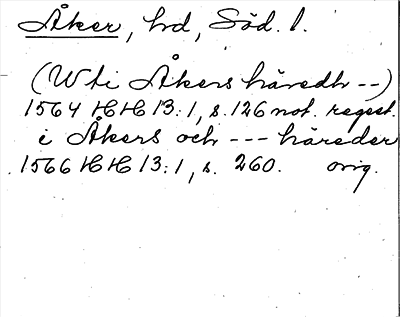 Åker, hd, Söd. l.
(W ti Åkers häredh --)
1564 HH 13:1, s. 126 not. regest.
i Åkers och --- häreder
1566 HH 13:1, s. 260. orig.